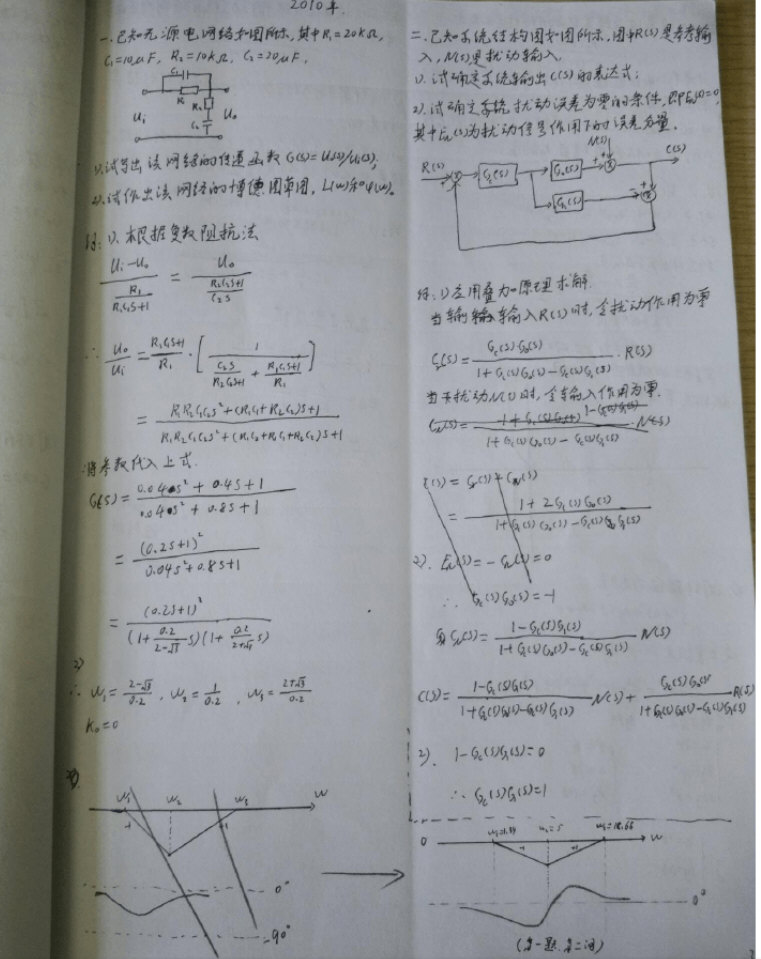 2010年.
一. 已知无源电网络如图所示, 其中R₁=20kΩ,
C₁=10μF, R₂=10kΩ, C₂=20μF,
C₁
R₁
R₂
Ui
Uo
C₂
1). 试导出该网络的传递函数 G(s)=Uo(s)/Ui(s);
2). 试作出该网络的博德图草图, L(ω)和φ(ω)。
解: 1). 根据复数阻抗法
(Ui-Uo)/(R₁/(R₁C₁s+1)) = Uo/((R₂C₂s+1)/(C₂s))
∴ Uo/Ui = (R₁C₁s+1)/R₁ · [1/(C₂s/(R₂C₂s+1) + (R₁C₁s+1)/R₁)]
= (R₁R₂C₁C₂s²+(R₁C₁+R₂C₂)s+1)/(R₁R₂C₁C₂s²+(R₁C₂+R₁C₁+R₂C₂)s+1)
将参数代入上式.
G(s) = (0.04s²+0.4s+1)/(0.04s²+0.8s+1)
= (0.2s+1)²/(0.04s²+0.8s+1)
= (0.2s+1)²/((1+0.2/(2-√3) s)(1+0.2/(2+√3) s))
2)
∴ ω₁=(2-√3)/0.2, ω₂=1/0.2, ω₃=(2+√3)/0.2
K₀=0
ω₁ ω₂ ω₃ ω
-1
+1
0°
-90°
二. 已知系统结构图如图所示, 图中R(s)是参考输
入, N(s)是扰动输入.
1). 试确定系统输出C(s)的表达式;
2). 试确定系统扰动误差为零的条件, 即En(s)=0,
其中En(s)为扰动信号作用下的误差分量。
N(s)
R(s) Gc(s) Go(s) C(s)
G₁(s)
解: 1) 应用叠加原理求解.
当输入R(s)时, 令扰动作用为零
= Gc(s)Go(s)/(1+Gc(s)Go(s)-Gc(s)G₁(s)) · R(s)
当扰动N(s)时, 令输入作用为零.
1+Gc(s)Go(s)-Gc(s)G₁(s) · N(s)
C(s) = +
= (1+2Gc(s)Go(s))/(1+Gc(s)Go(s)-Gc(s)G₁(s))
2). En(s)=-Cn(s)=0
∴ Gc(s)Go(s)=-1
Cn(s) = (1-Gc(s)G₁(s))/(1+Gc(s)Go(s)-Gc(s)G₁(s)) N(s)
C(s) = (1-Gc(s)G₁(s))/(1+Gc(s)Go(s)-Gc(s)G₁(s)) N(s) + Gc(s)Go(s)/(1+Gc(s)Go(s)-Gc(s)G₁(s)) R(s)
2). 1-Gc(s)G₁(s)=0
∴ Gc(s)G₁(s)=1
0 ω₂=5 ω₃=18.66 ω
-1 +1
0°
(第一题. 第二问)